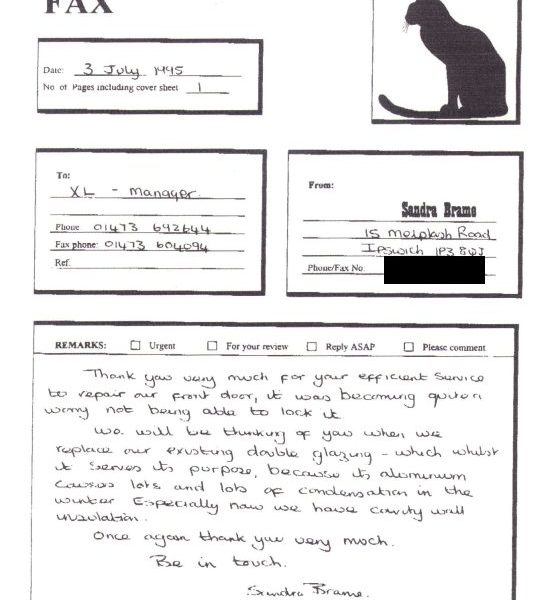 FAX
Date: 3 July 1995
No. of Pages including cover sheet 1
To:
XL - Manager.
Phone 01473 692644
Fax phone: 01473 604094
Ref.
From:
Sandra Brame
15 Melplash Road
Ipswich IP3 8QJ
Phone/Fax No.
REMARKS: Urgent For your review Reply ASAP Please comment
Thank you very much for your efficient service
to repair our front door, it was becoming quite a
worry not being able to lock it.
We will be thinking of you when we
replace our existing double glazing - which whilst
it serves its purpose, because its aluminum
causes lots and lots of condensation in the
winter Especially now we have cavity wall
insulation.
Once again thank you very much.
Be in touch.
Sandra Brame.